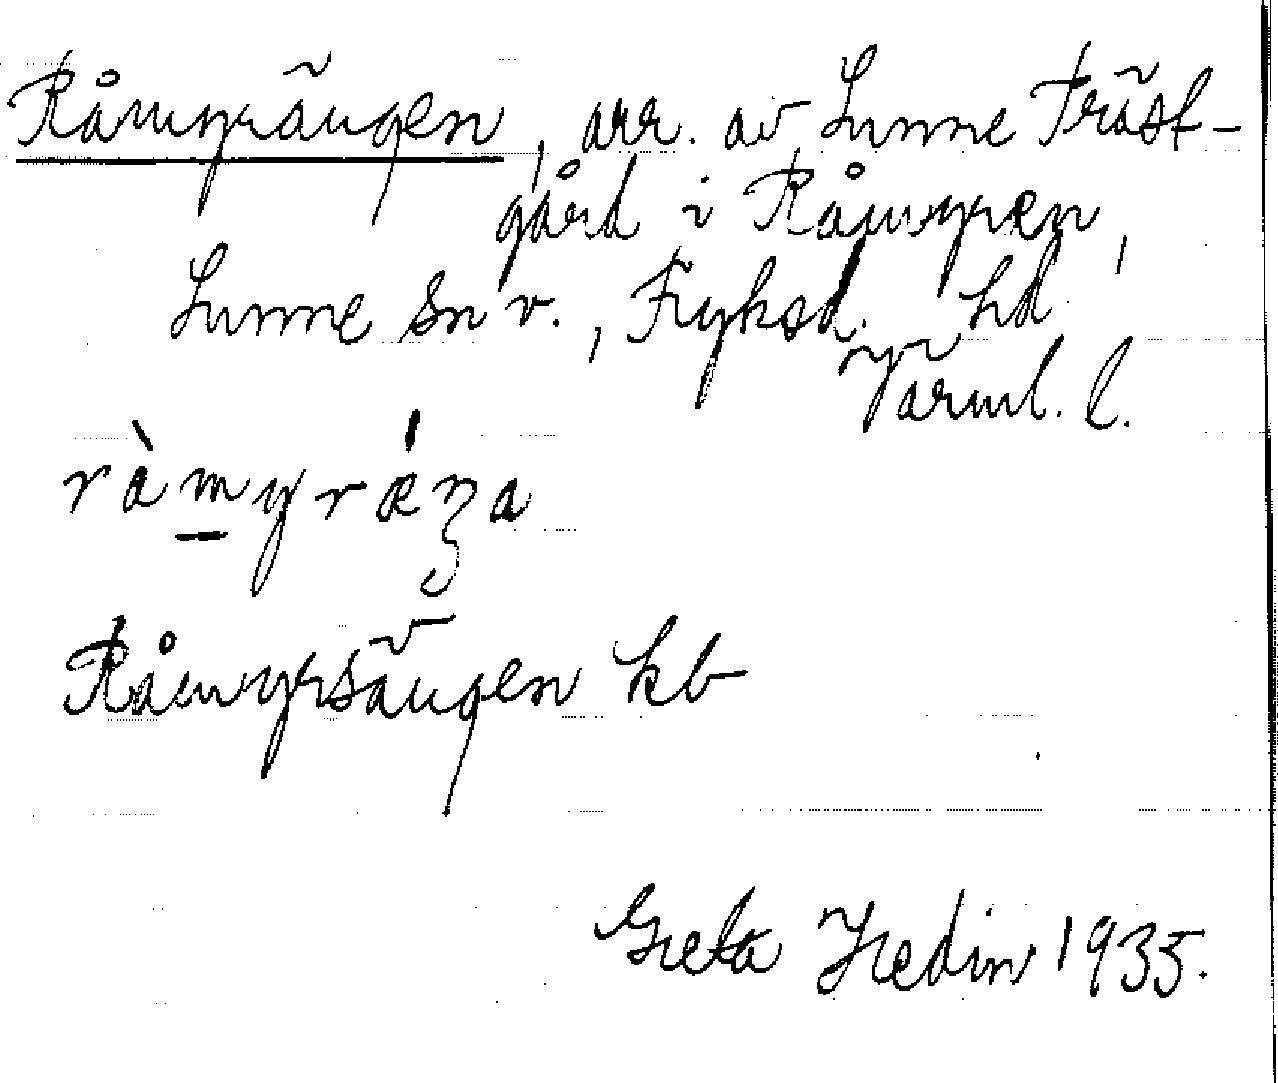 Råmyrängen, arr. av Sunne Präst-
gård i Råmyren,
Sunne sn v., Fryksd. hd
Värml. l.
ràmyrǽŋa
Råmyrsängen kb
Greta Hedin 1935.